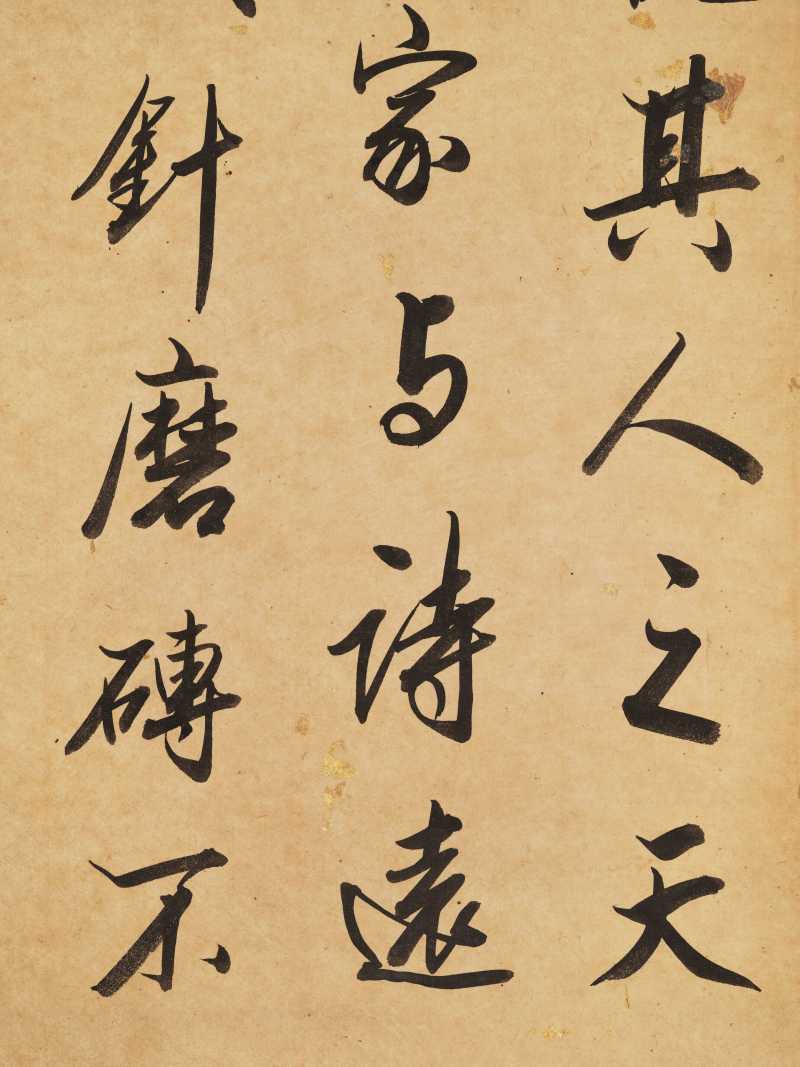 其人之天
家与詩遠
針磨磚不